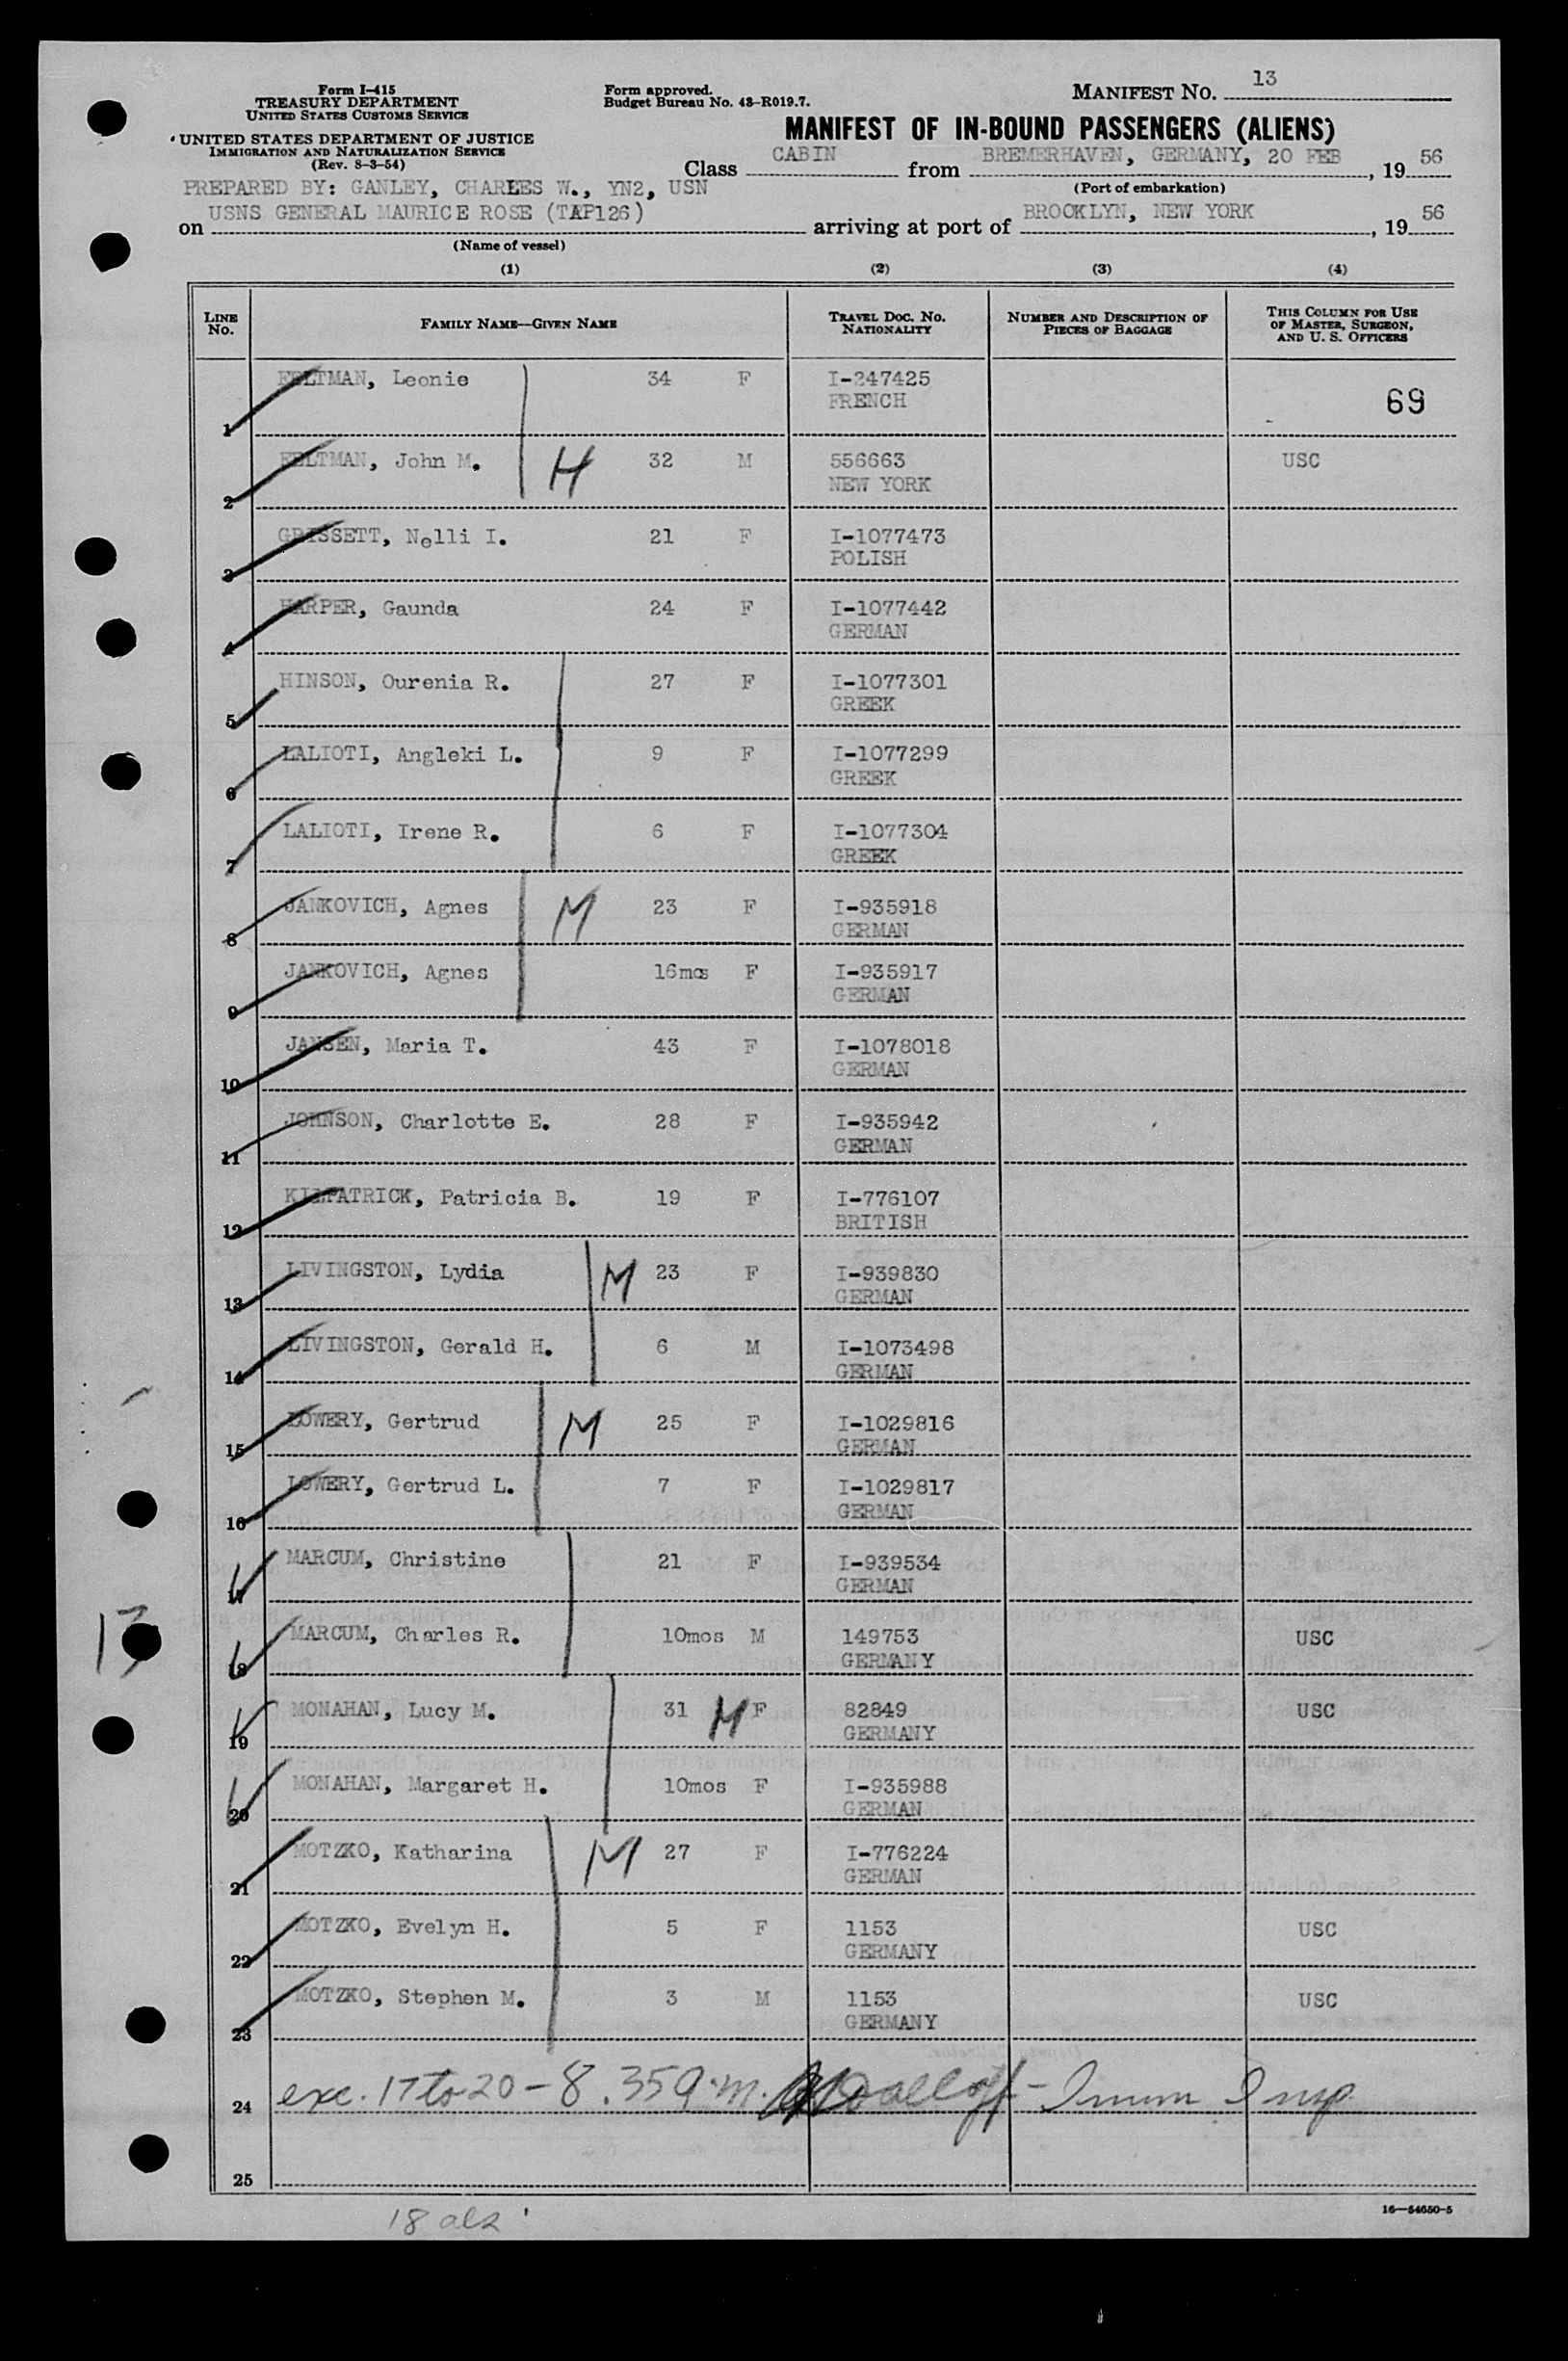 Form I-415
TREASURY DEPARTMENT
UNITED STATES CUSTOMS SERVICE
UNITED STATES DEPARTMENT OF JUSTICE
IMMIGRATION AND NATURALIZATION SERVICE
(Rev. 8-3-54)
Form approved.
Budget Bureau No. 43-R019.7.
MANIFEST NO. 13
MANIFEST OF IN-BOUND PASSENGERS (ALIENS)
Class CABIN from BREMERHAVEN, GERMANY, 20 FEB, 1956
(Port of embarkation)
PREPARED BY: GANLEY, CHARLES W., YN2, USN
on USNS GENERAL MAURICE ROSE (TAP126) arriving at port of BROOKLYN, NEW YORK, 1956
(Name of vessel)
(1) (2) (3) (4)
LINE NO. FAMILY NAME—GIVEN NAME TRAVEL DOC. NO. NATIONALITY NUMBER AND DESCRIPTION OF PIECES OF BAGGAGE THIS COLUMN FOR USE OF MASTER, SURGEON, AND U. S. OFFICERS
1 FELTMAN, Leonie 34 F I-247425 69
FRENCH
2 FELTMAN, John M. H 32 M 556663 USC
NEW YORK
3 GRISSETT, Nelli I. 21 F I-1077473
POLISH
4 HARPER, Gaunda 24 F I-1077442
GERMAN
5 HINSON, Ourenia R. 27 F I-1077301
GREEK
6 LALIOTI, Angleki L. 9 F I-1077299
GREEK
7 LALIOTI, Irene R. 6 F I-1077304
GREEK
8 JANKOVICH, Agnes M 23 F I-935918
GERMAN
9 JANKOVICH, Agnes 16mos F I-935917
GERMAN
10 JANSEN, Maria T. 43 F I-1078018
GERMAN
11 JOHNSON, Charlotte E. 28 F I-935942
GERMAN
12 KILPATRICK, Patricia B. 19 F I-776107
BRITISH
13 LIVINGSTON, Lydia M 23 F I-939830
GERMAN
14 LIVINGSTON, Gerald H. 6 M I-1073498
GERMAN
15 LOWERY, Gertrud M 25 F I-1029816
GERMAN
16 LOWERY, Gertrud L. 7 F I-1029817
GERMAN
17 MARCUM, Christine 21 F I-939534
GERMAN
18 MARCUM, Charles R. 10mos M 149753 USC
GERMANY
13
19 MONAHAN, Lucy M. 31 M F 82849 USC
GERMANY
20 MONAHAN, Margaret H. 10mos F I-935988
GERMAN
21 MOTZKO, Katharina M 27 F I-776224
GERMAN
22 MOTZKO, Evelyn H. 5 F 1153 USC
GERMANY
23 MOTZKO, Stephen M. 3 M 1153 USC
GERMANY
24 exc. 17 to 20 - 8.35 a.m. - Imm Insp.
25
18 als
16—54650-5